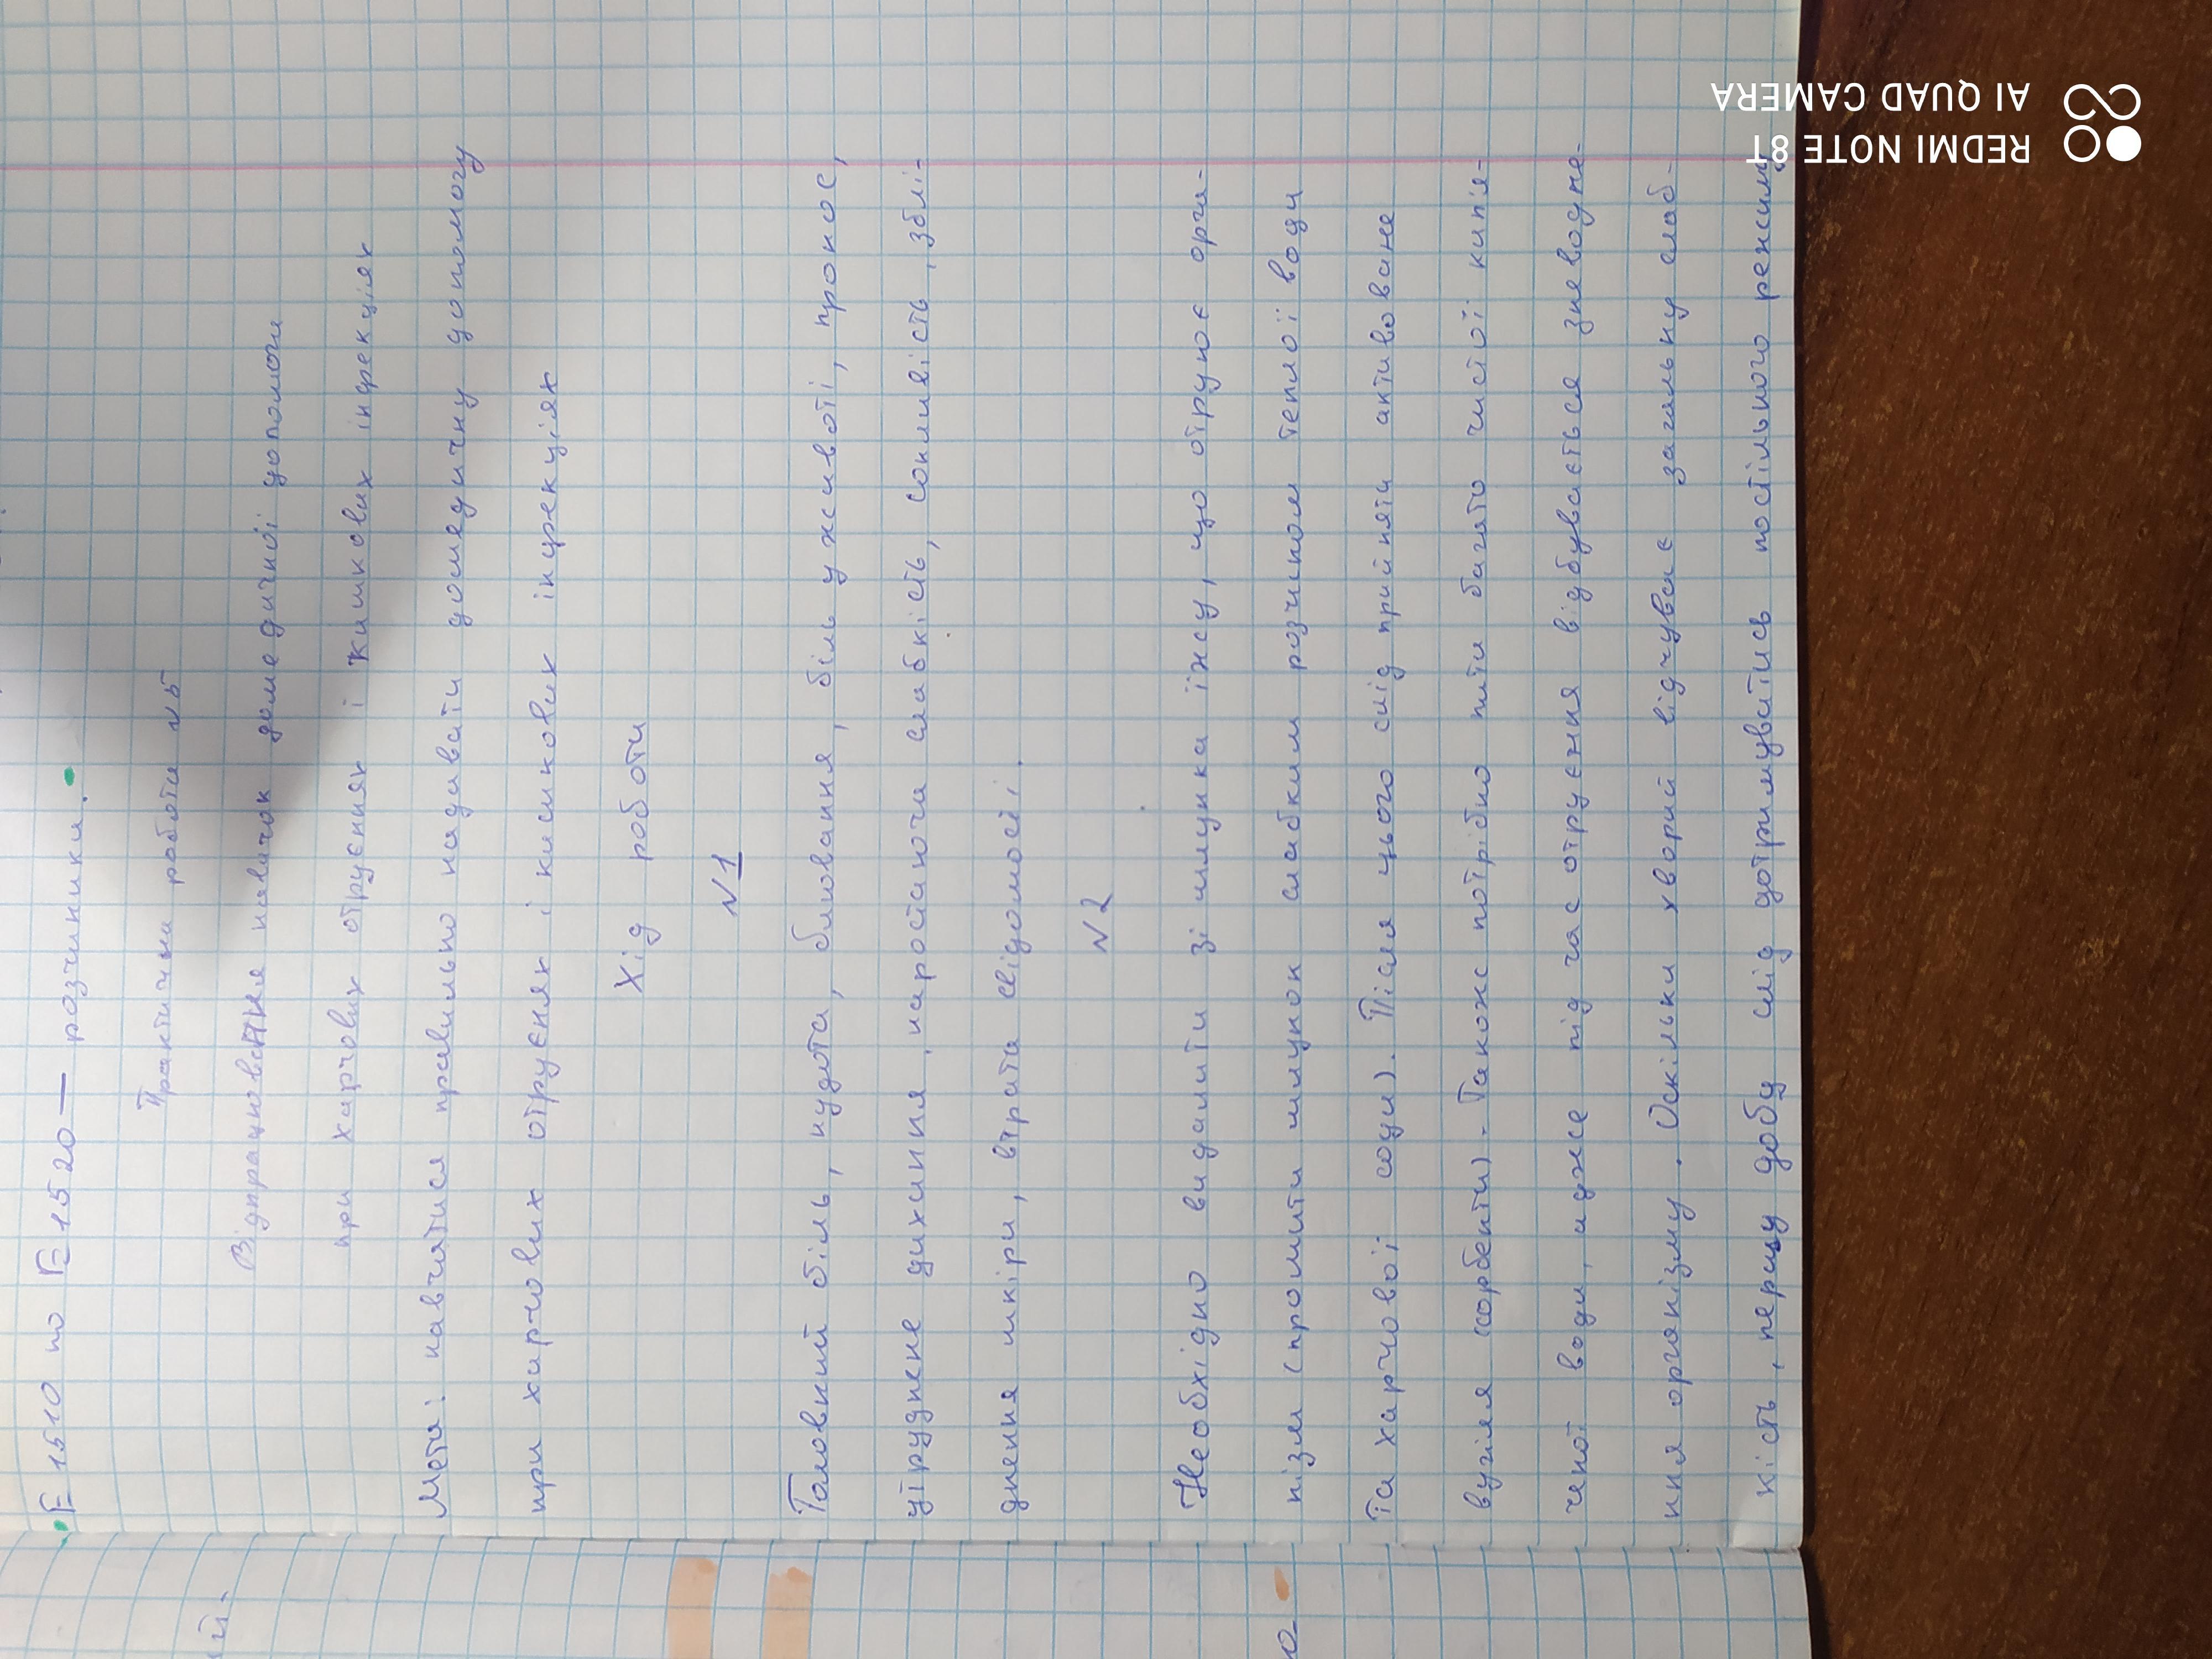 E 1510 по E 1520 — розчинники.
Практична робота №5
Відпрацювання навичок домедичної допомоги
при харчових отруєннях і кишкових інфекціях
Мета: навчитися правильно надавати домедичну допомогу
при харчових отруєннях і кишкових інфекціях
Хід роботи
№1
Головний біль, нудота, блювання, біль у животі, пронос,
утруднене дихання, наростаюча слабкість, сонливість, зблі-
днення шкіри, втрата свідомості.
№2
Необхідно видалити зі шлунка їжу, що отруює орга-
нізм (промити шлунок слабким розчином теплої води
та харчової соди). Після цього слід прийняти активоване
вугілля (сорбенти). Також потрібно пити багато чистої кип'я-
ченої води, адже під час отруєння відбувається зневодне-
ння організму. Оскільки хворий відчуває загальну слаб-
кість, першу добу слід дотримуватись постільного режиму
ий-
ю
REDMI NOTE 8T
AI QUAD CAMERA